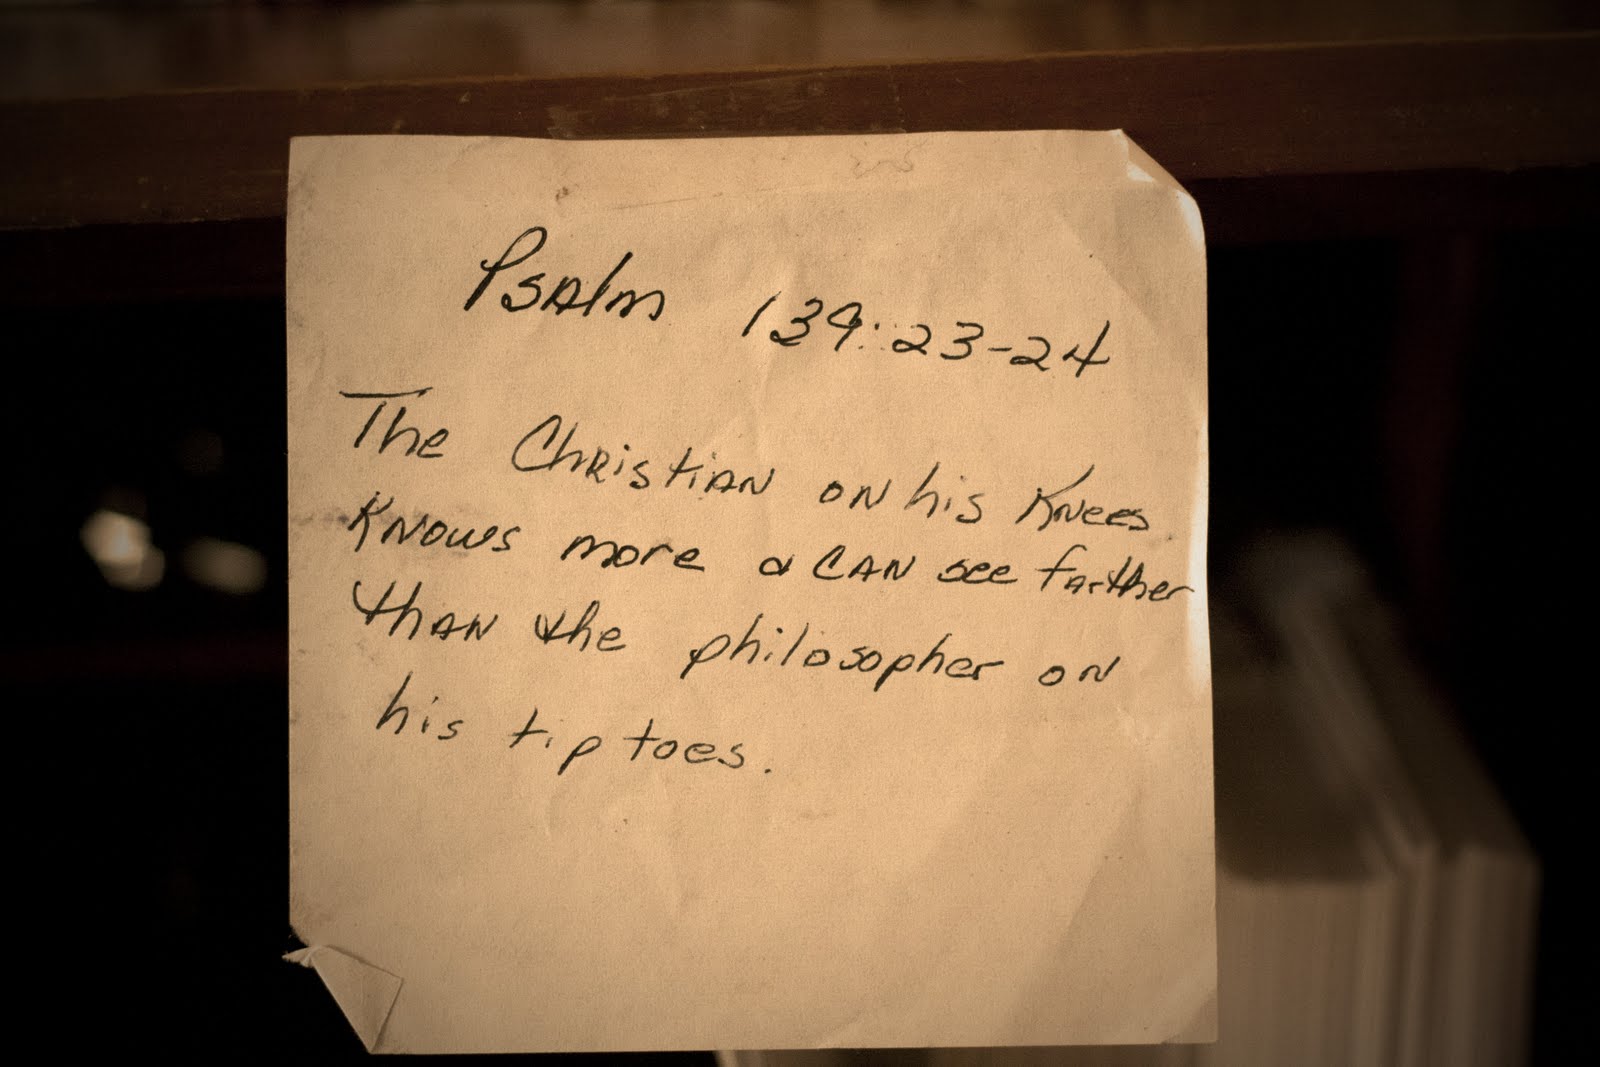 Psalm 139:23-24
The Christian on his Knees
Knows more & can see farther
than the philosopher on
his tip toes.